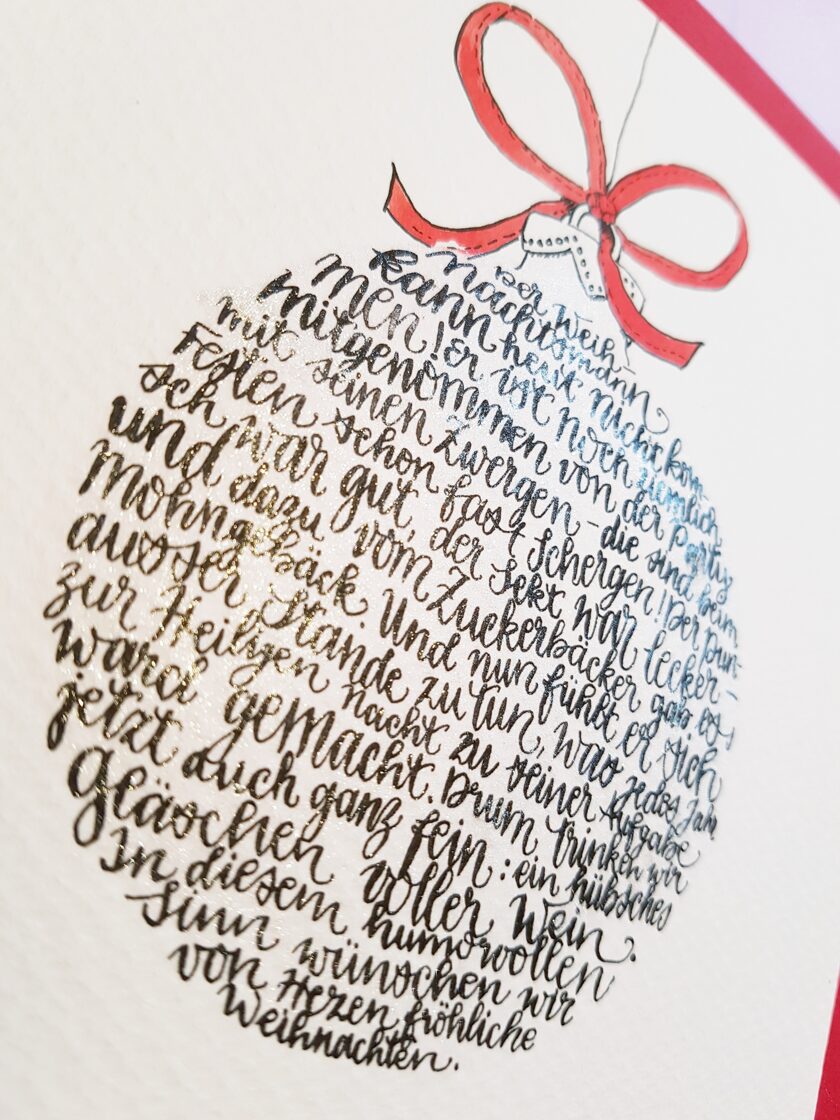 Der Weih-
nachtsmann
kann heut nicht kom-
men! Er ist noch ziemlich
mitgenommen von der Party
mit seinen Zwergen – die sind beim
Festen schon fast Schergen! Der Pun-
sch war gut, der Sekt war lecker –
und dazu vom Zuckerbäcker gab es
Mohngebäck. Und nun fühlt er sich
ausser Stande zu tun, was jedes Jahr
zur Heiligen Nacht zu seiner Aufgabe
ward gemacht. Drum trinken wir
jetzt auch ganz fein: ein hübsches
Gläschen voller Wein.
In diesem humorvollen
Sinn wünschen wir
von Herzen fröhliche
Weihnachten.